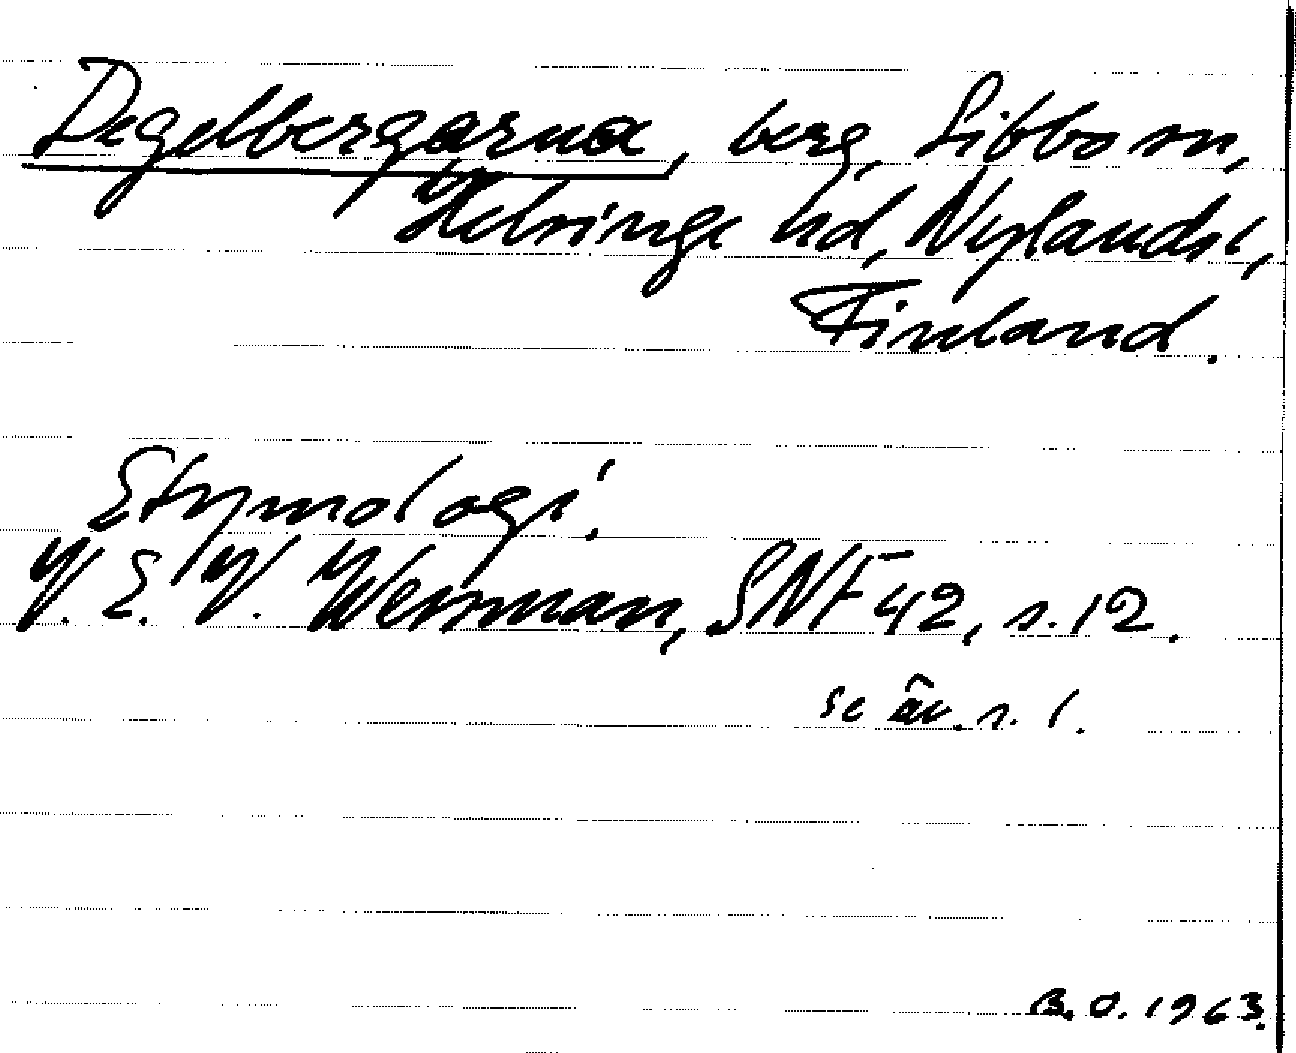 Degelbergarna, berg, Sibbo sn,
Helsinge hd, Nylands l,
Finland.
Etymologi.
V. E. V. Wessman, SNF 42, s. 12.
se äv. s. 1.
B. O. 1963.